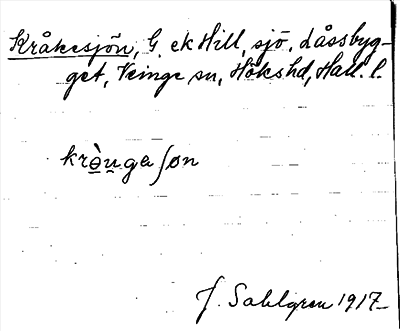 Kråkesjön, G. ek Hill, sjö, Låssbyg-
get, Veinge sn, Hökshd, Hall. l.
krø̀u̯ga ʃøn
J. Sahlgren 1917